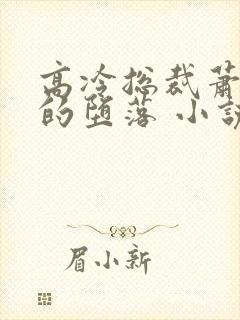 高冷总裁萧
的堕落 小说
眉小新